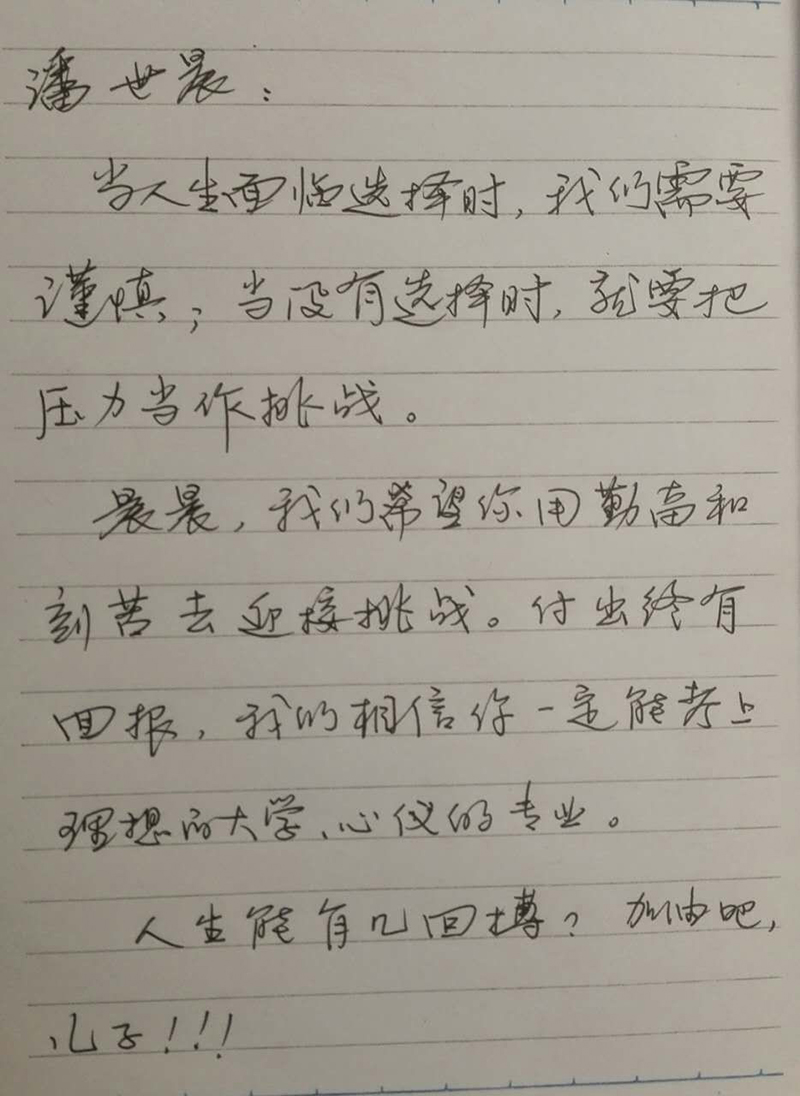 潘世晨：
当人生面临选择时，我们需要
谨慎；当没有选择时，就要把
压力当作挑战。
晨晨，我们希望你用勤奋和
刻苦去迎接挑战。付出终有
回报，我们相信你一定能考上
理想的大学、心仪的专业。
人生能有几回搏？加油吧，
儿子！！！